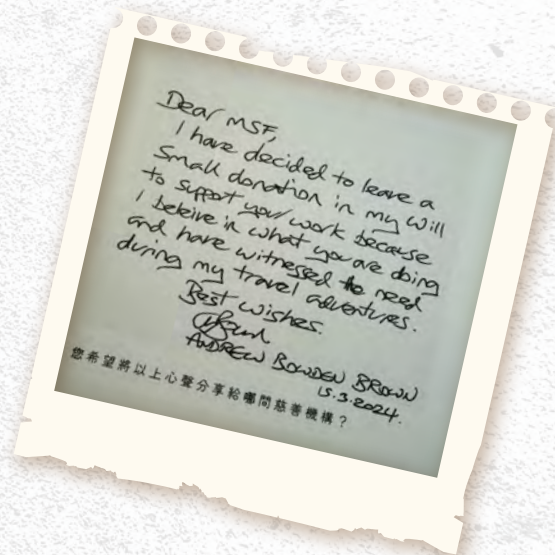 Dear MSF,
I have decided to leave a
small donation in my will
to support your work because
I beleive in what you are doing
and have witnessed the need
during my travel adventures.
Best wishes.
ANDREW BOWDEN BROWN
15.3.2024.
您希望將以上心聲分享給哪間慈善機構？